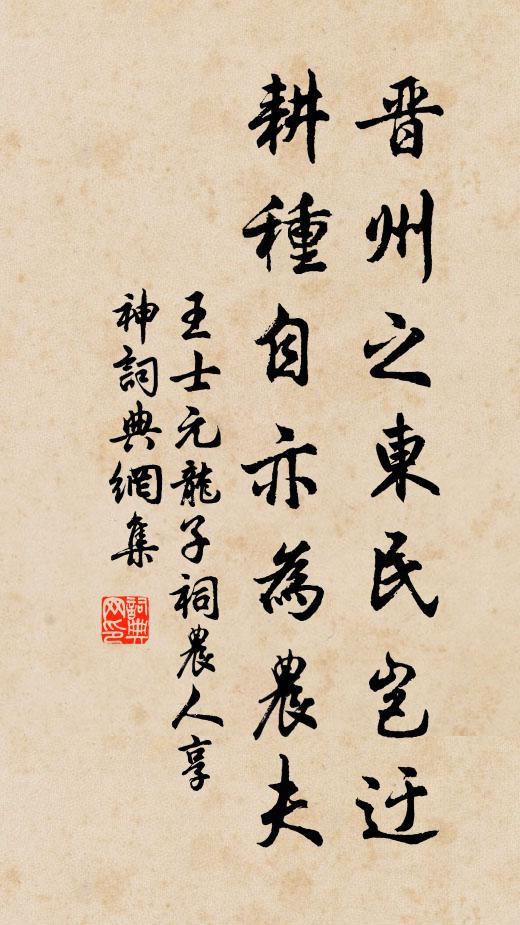 晋州之東民岂迂
耕種自亦為農夫
王士元龍子祠農人享
神詞典網集
詞典
网印